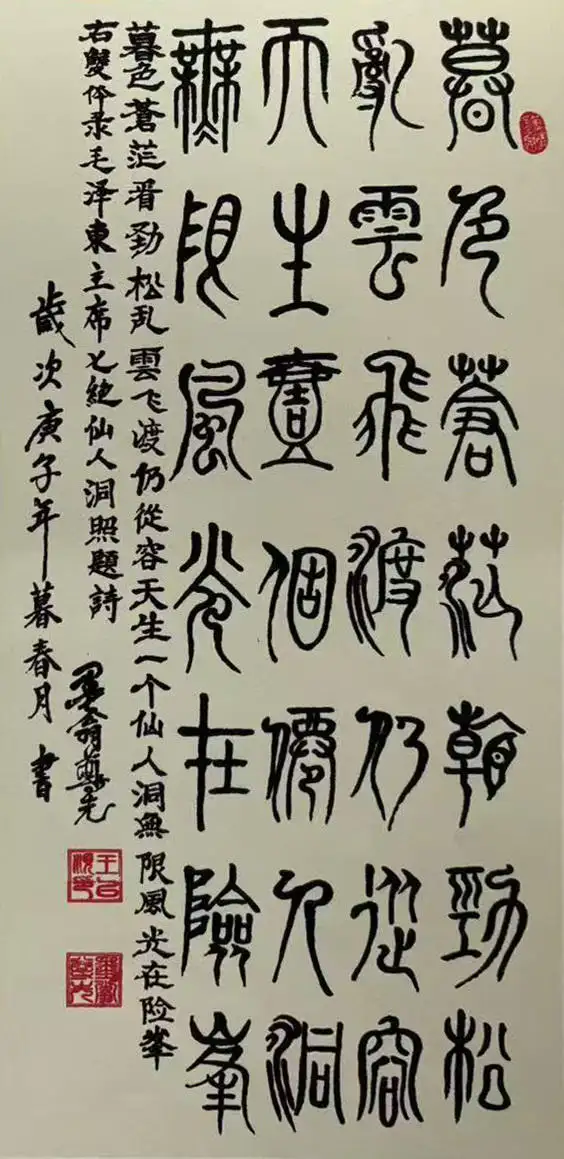 暮色蒼茫看勁松
亂雲飛渡仍從容
天生壹個僊人洞
無限風光在險峯
暮色蒼茫看劲松乱雲飞渡仍從容天生一个仙人洞無限風光在险峯
右雙体录毛泽東主席七絶仙人洞照題詩
歲次庚子年暮春月書